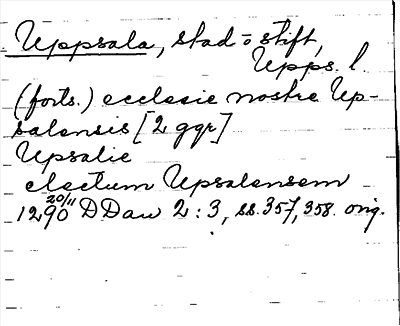 Uppsala, stad o stift,
Upps. l.
(forts.) ecclesie nostre Up-
salensis [2 ggr]
Upsalie
electum Upsalensem
1290 20/11 DDan 2:3, ss. 357, 358. orig.